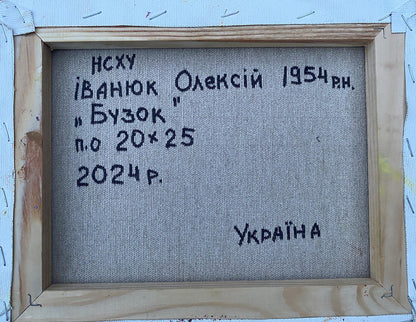 НСХУ
іванюк Олексій 1954 р.н.
„Бузок"
п.о 20×25
2024 р.
Україна